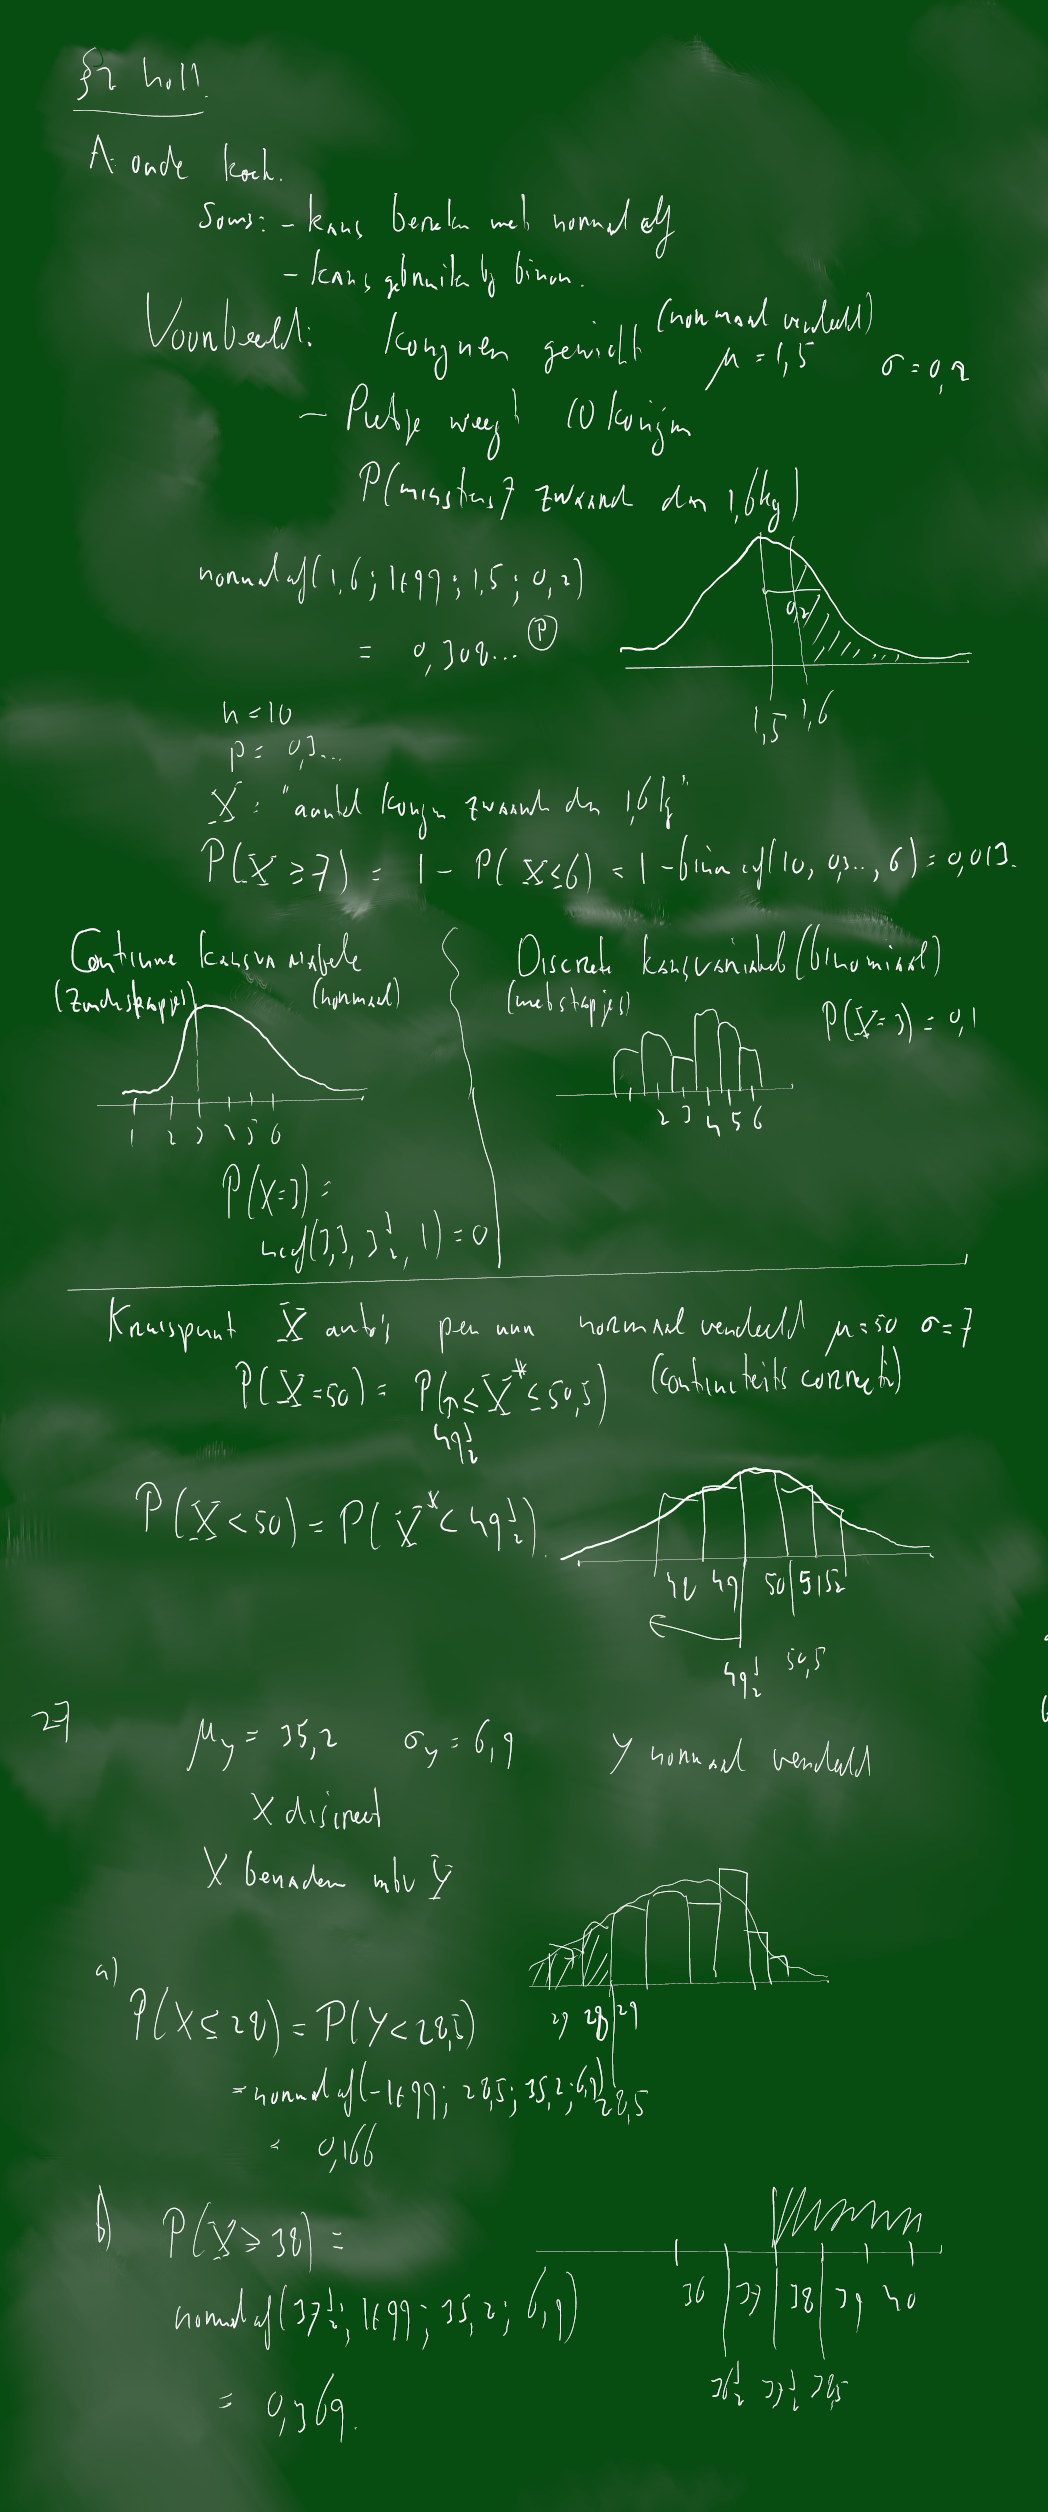 §2 h.11.
A: oude koek.
Soms: - kans bereken met normalcdf
- kans gebruiken bij binom.
Voorbeeld: konijnen gewicht (normaal verdeeld)
μ = 1,5 σ = 0,2
- Pietje weegt 10 konijn
P(minstens 7 zwaard dan 1,6kg)
normalcdf(1,6; 1E99; 1,5; 0,2)
= 0,308... (P)
0,2
1,5 1,6
n = 10
p = 0,3...
X = "aantal konijn zwaard dan 1,6 kg"
P(X ≥ 7) = 1 - P(X ≤ 6) = 1 - binomcdf(10, 0,3..., 6) = 0,013.
Continue kansvariabele
(Zonder stapjes) (normaal)
1 2 3 4 5 6
P(X=3) =
ncdf(3,3, 3½, 1) = 0
Discrete kansvariabel (binomiaal)
(met stapjes)
P(X=3) = 0,1
2 3 4 5 6
Kruispunt X auto's per uur normaal verdeeld μ=50 σ=7
P(X=50) = P(↑≤X*≤50,5) (continuiteits correctie)
49½
P(X<50) = P(X*<49½).
48 49 50 51 52
49½ 50,5
27
μy = 35,2 σy = 6,9 Y normaal verdeeld
X discreet
X benaderen mbv Y
a)
P(X≤28) = P(Y<28,5)
= normalcdf(-1E99; 28,5; 35,2; 6,9)
= 0,166
27 28 29
28,5
b) P(X≥38) =
normalcdf(37½; 1E99; 35,2; 6,9)
= 0,369.
36 37 38 39 40
36½ 37½ 38,5